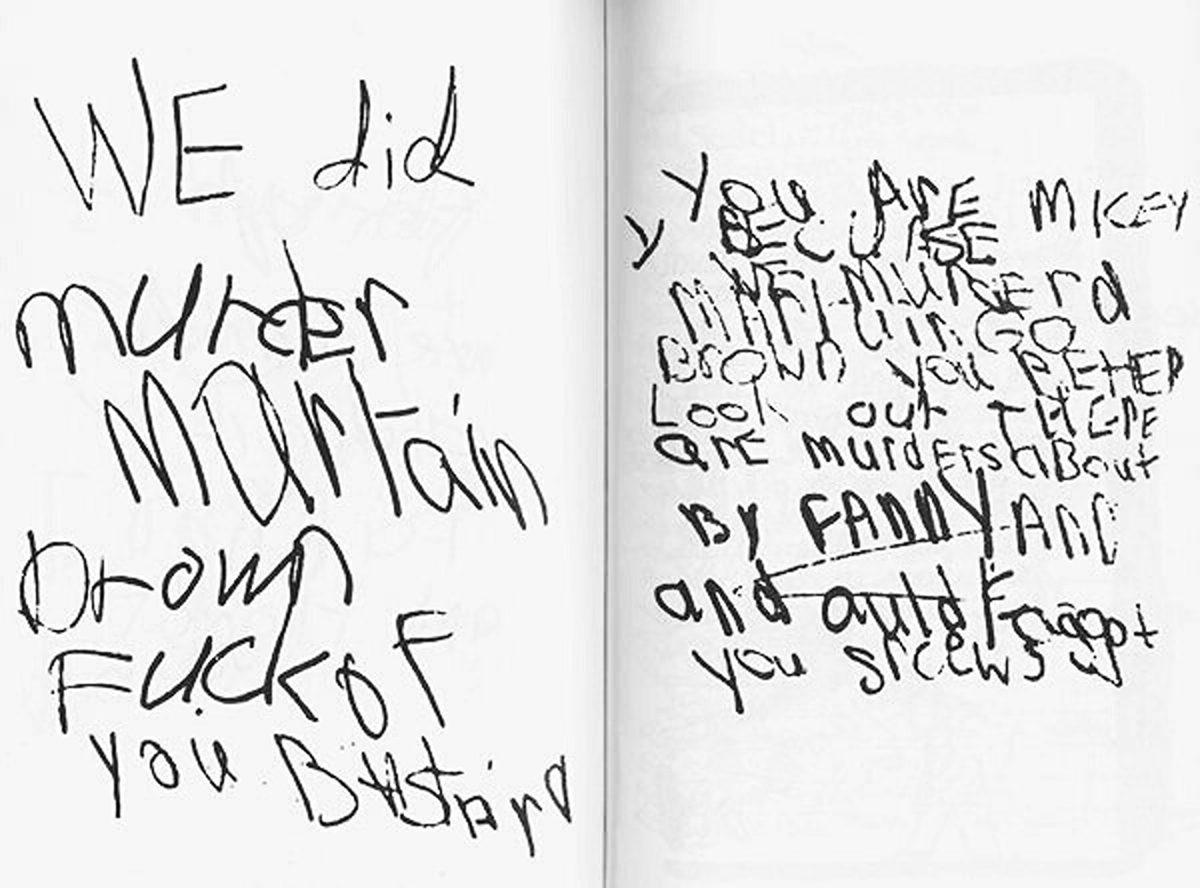 WE did
murder
MArtain
brown
Fuck of
you BAstArd
You ArE M KEY
Y BECUASE
WE MurdErd
MArtAin GO
BrOWn you BETTER
Look out THErE
are murdErs aBout
By FANNY AND
and auld Faggot
you srcews